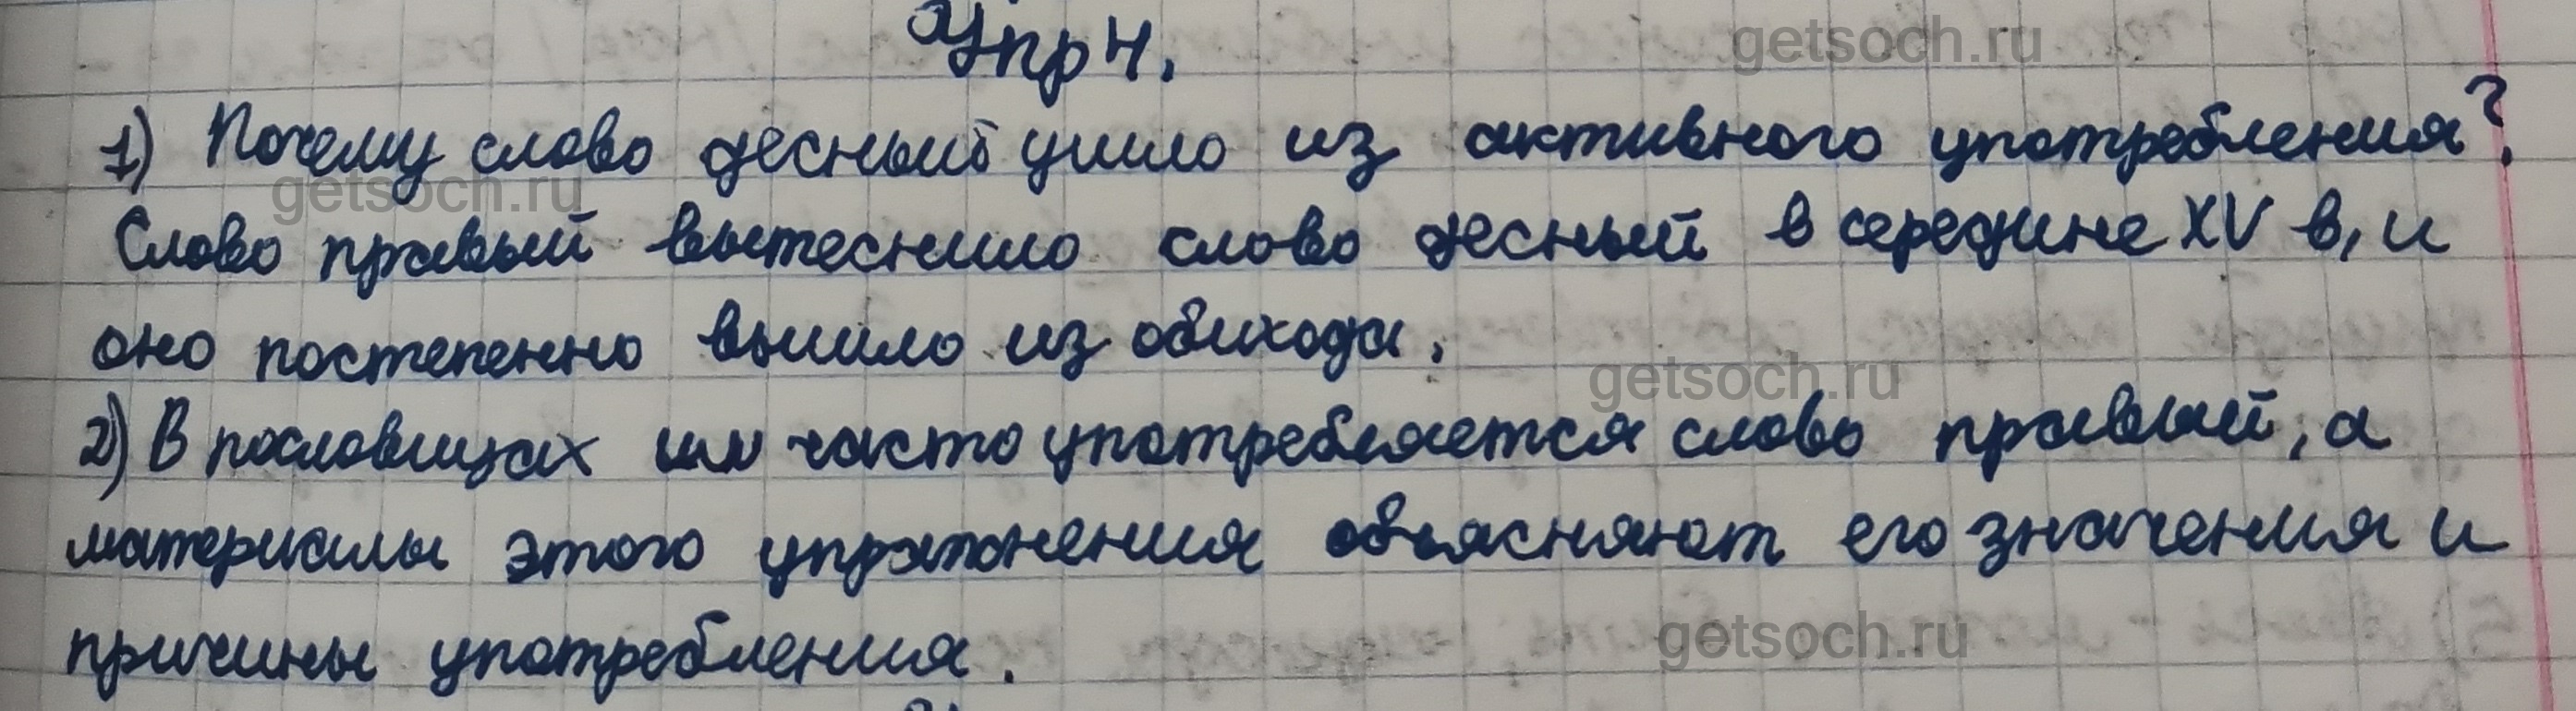 Упр 4.
getsoch.ru
1) Почему слово десный ушло из активного употребления?
getsoch.ru
Слово правый вытеснило слово десный в середине XV в, и
оно постепенно вышло из обихода.
getsoch.ru
2) В пословицах часто употребляется слово правый, а
материалы этого упражнения объясняют его значения и
причины употребления.
getsoch.ru